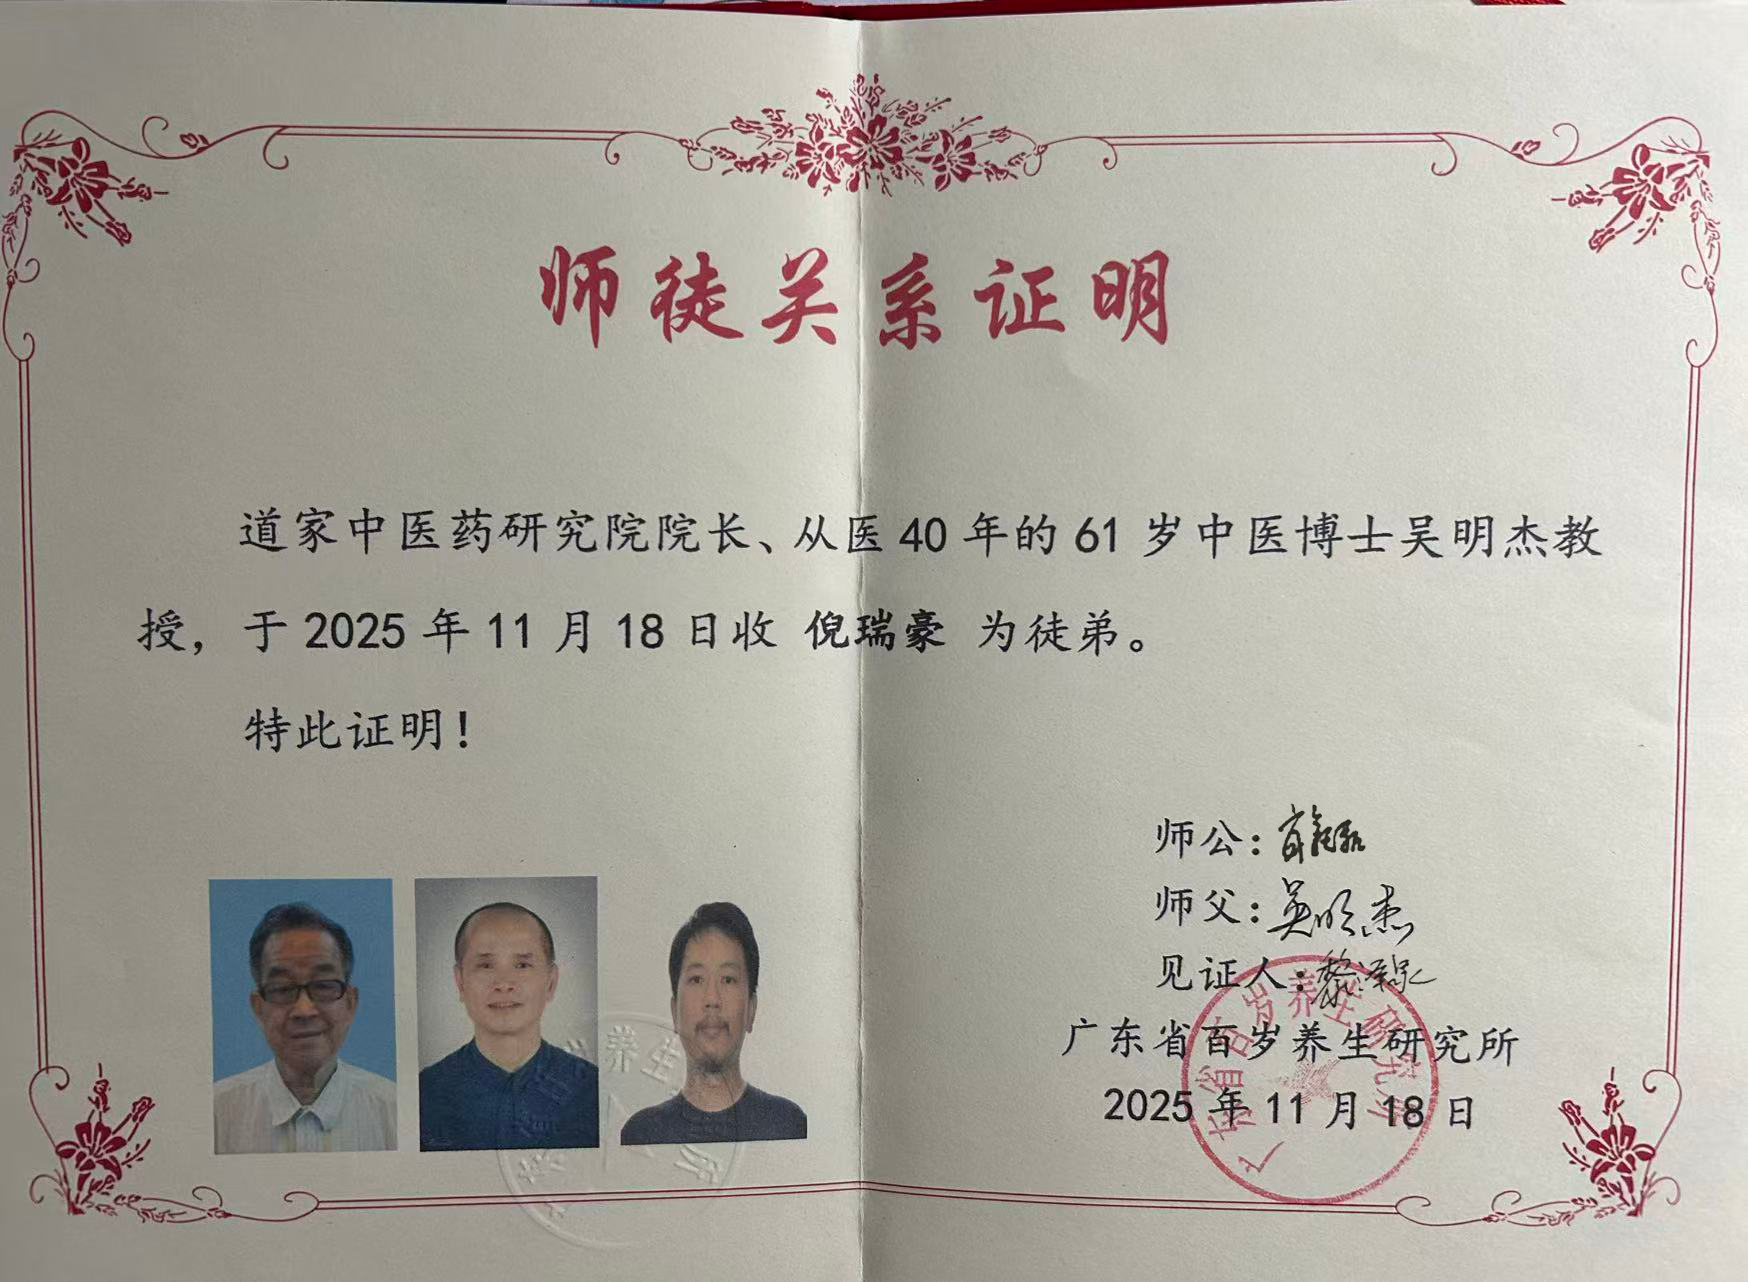 师徒关系证明
道家中医药研究院院长、从医 40 年的 61 岁中医博士吴明杰教
授，于 2025 年 11 月 18 日收 倪瑞豪 为徒弟。
特此证明！
师公：
师父：吴明杰
见证人：黎
广东省百岁养生研究所
2025 年 11 月 18 日
广东省百岁养生研究所